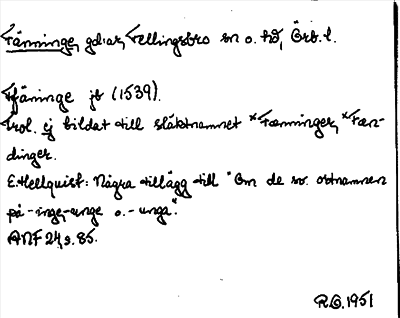 Fänninge, gdiar, Fellingsbro sn o. hd, Örb. l.
Fäninge jb (1539).
Trol. ej bildat till släktnamnet *Fænninger, *Fæn-
dinger.
E. Hellquist: Några tillägg till "Om de sv. ortnamnen
på -inge, -unge o. -unga".
ANF 24, s. 85.
R.O. 1951